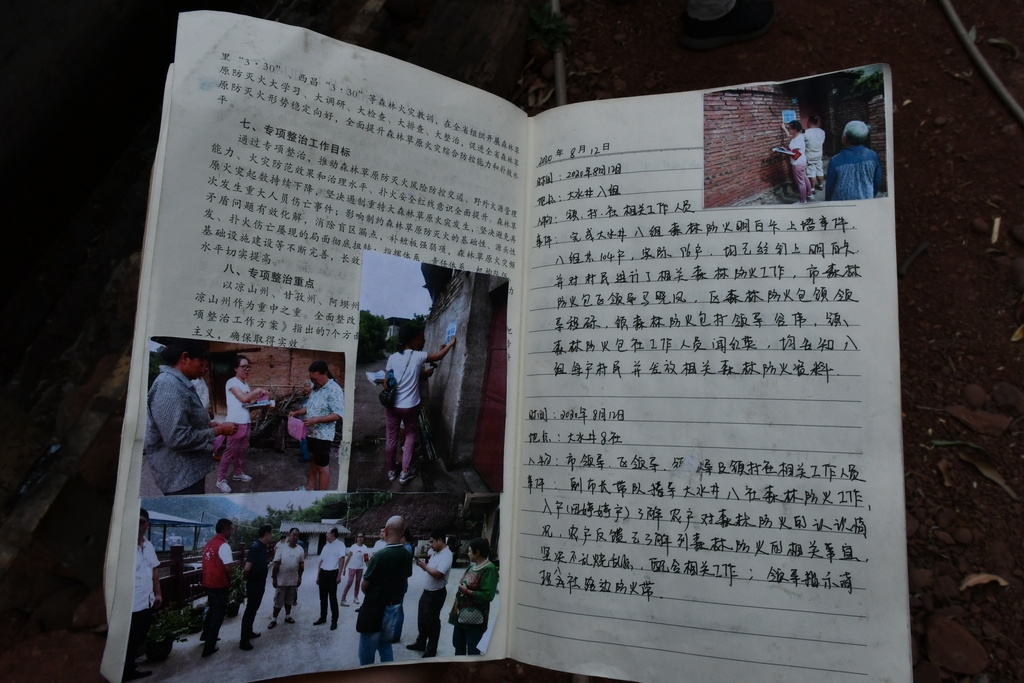 里“3·30”、西昌“3·30”等森林火灾教训，在全省组织开展森林草
原防灭火大学习、大调研、大检查、大排查、大整治，促进全省森林草
原防灭火形势稳定向好，全面提升森林草原火灾综合防控能力和
平。
七、专项整治工作目标
通过专项整治，推动森林草原防灭火风险防控交通、野外火源管理
能力、火灾防范效果和治理水平、扑火安全红线意识全面提升，森林草
原火灾起数持续下降，坚决遏制重特大森林草原火灾发生，坚决避免再
次发生重大人员伤亡事件；影响制约森林草原防灭火的基础性、源头性
矛盾问题有效化解，消除盲区漏点，补短板强弱项，森林草原火灾频
发、扑火伤亡屡现的局面彻底扭转；指挥体系、责任体系
基础设施建设等不断完善，长效
水平切实提高。
八、专项整治重点
以凉山州、甘孜州、阿坝州
凉山州作为重中之重。全面整改
项整治工作方案》指出的7个方面
主义，确保取得实效
2020年8月12日
时间：2020年8月12日
地点：大水井八组
人物：镇、村、社相关工作人员
事件：完成大水井八组森林防火明白卡上墙事件，
八组共104户，实际 户，均已经钉上明白卡
并对村民进行了相关森林防火工作，市森林
防火包飞领导 晓风，区森林防火包镇领
导 ，镇森林防火包村领导 伟，镇
森林防火包社工作人员闻 英，均告知八
组每户村民并发放相关森林防火资料。
时间：2020年8月12日
地点：大水井8社
人物：市领导、区领导、 镇村社相关工作人员
事件：副市长带队指导大水井八社森林防火工作，
入户（ 户）了解农户对森林防火的认识情
况，农户反馈已了解到森林防火的相关事宜，
坚决不乱烧乱 ，配合相关工作；领导指示清
理全社路边防火带。